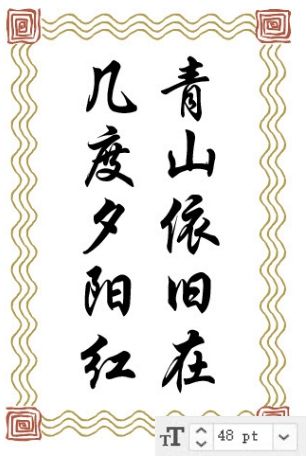 青山依旧在
几度夕阳红
48 pt